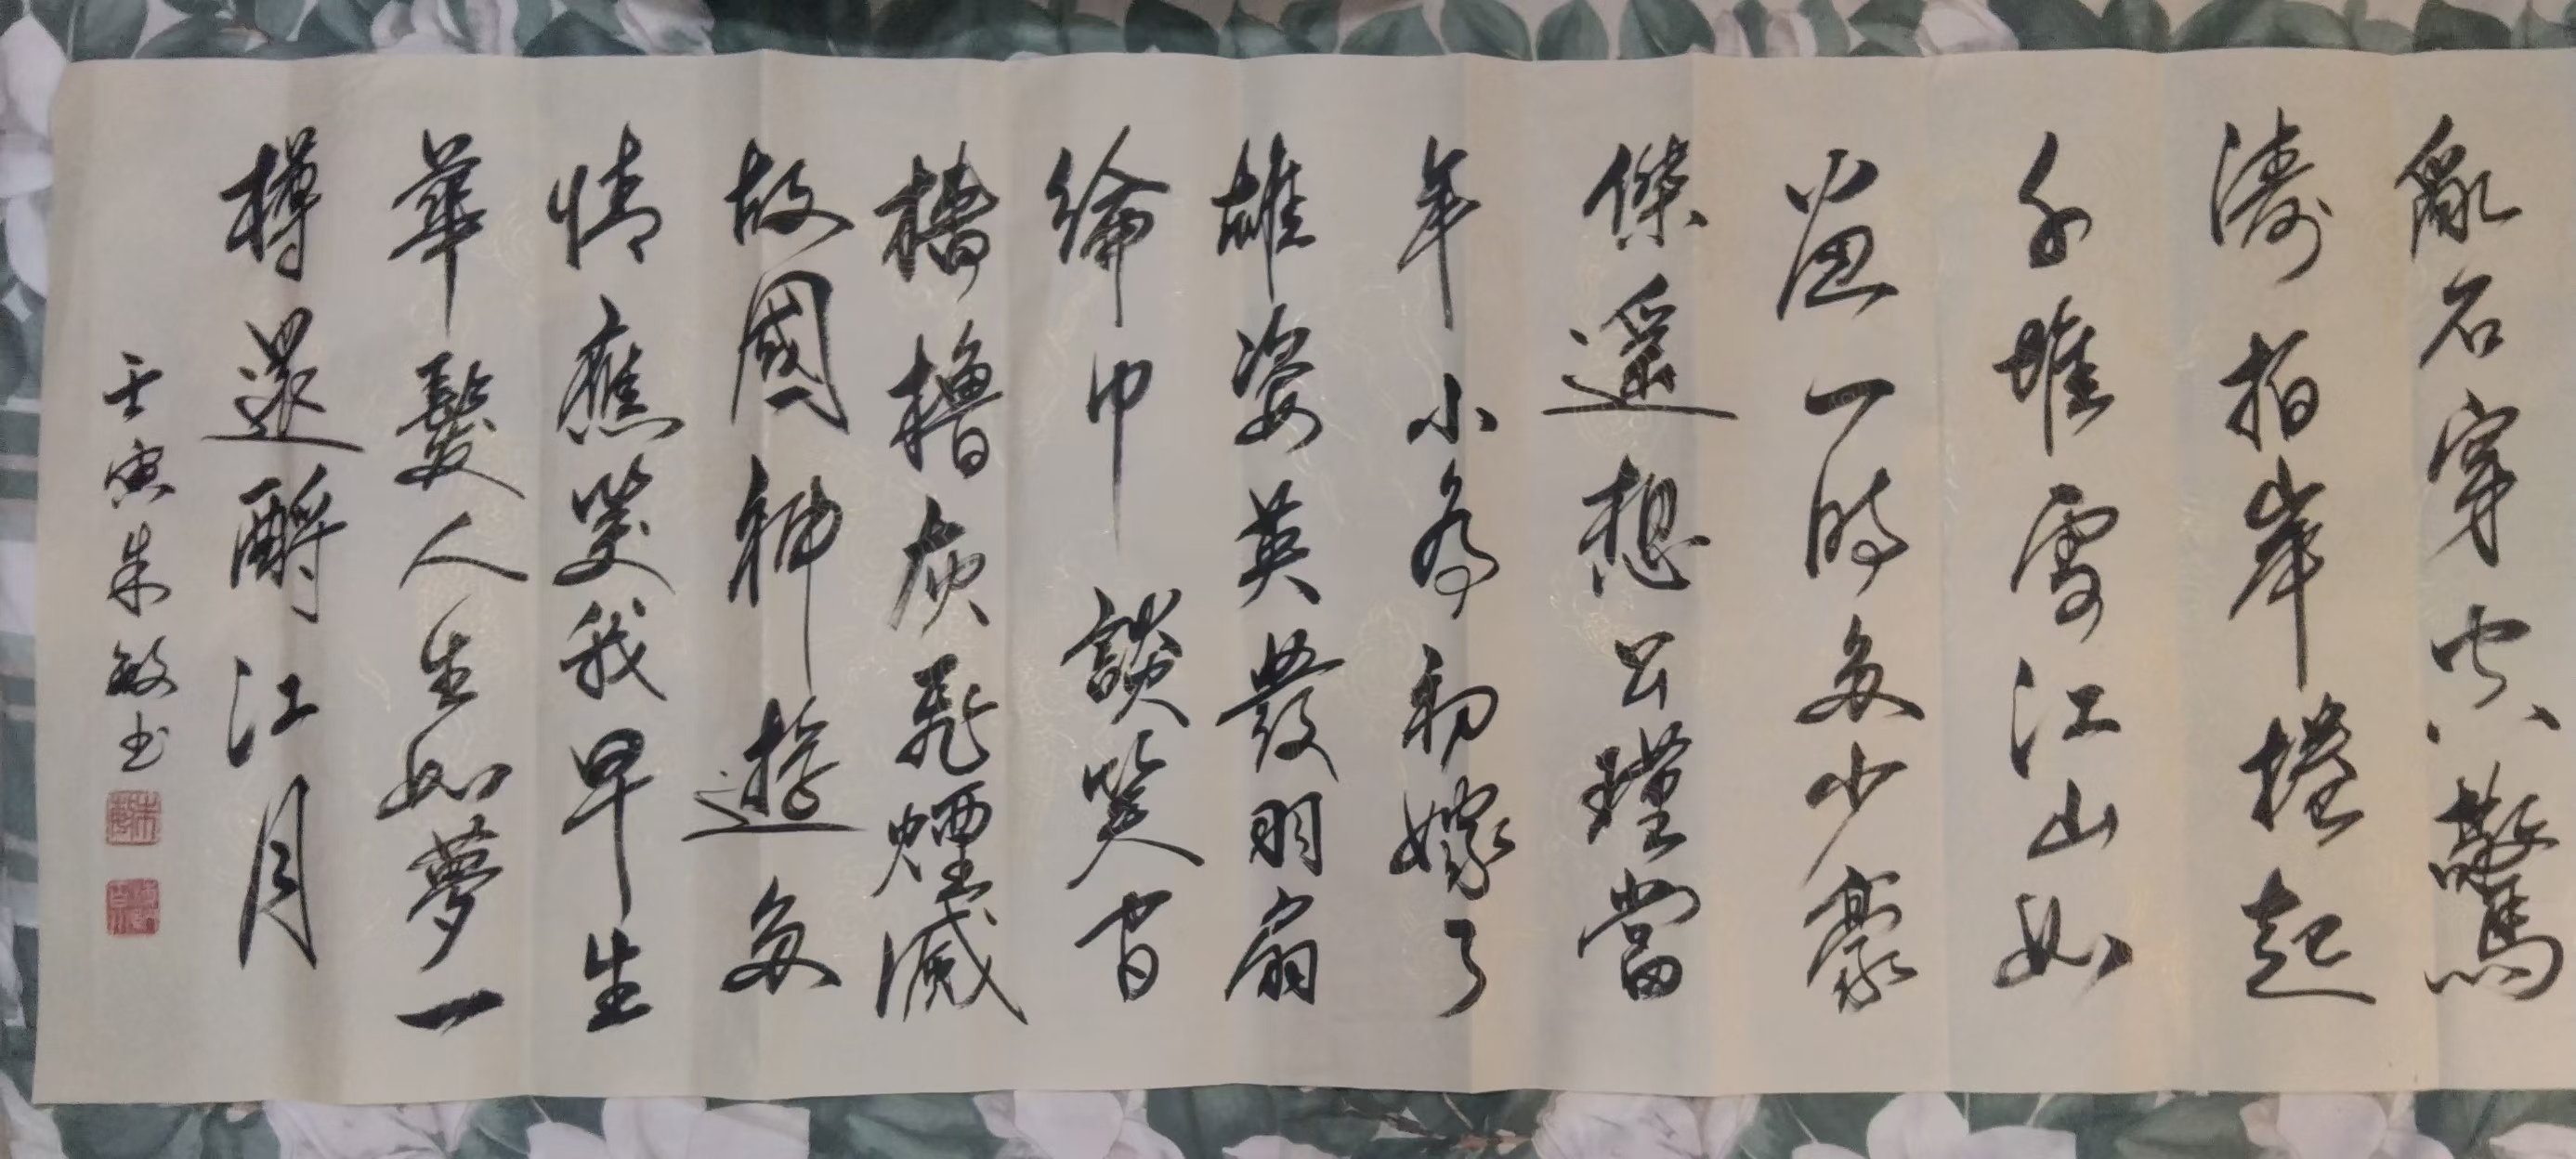 亂石穿空驚
濤拍岸捲起
千堆雪江山如
畫一時多少豪
傑遥想公瑾當
年小喬初嫁了
雄姿英發羽扇
綸巾談笑間
檣櫓灰飛煙滅
故國神遊多
情應笑我早生
華髮人生如夢一
樽還酹江月
壬寅朱敏书